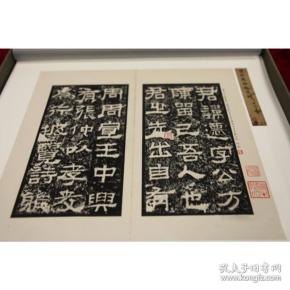 君諱遷字公方
陳留己吾人也
君之先出自有
周周宣王中興
有張仲以孝友
為行披覽詩雅
孔夫子旧书网